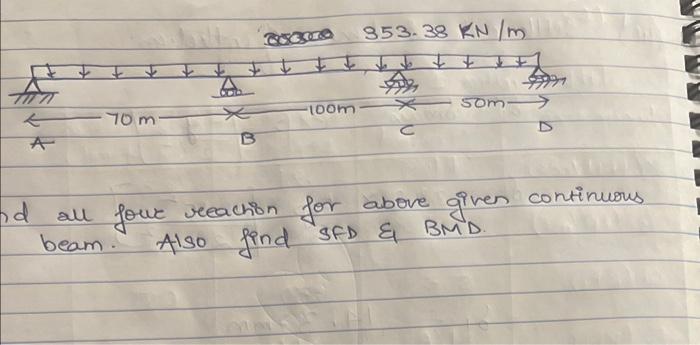 353.38 KN/m
70m 100m 50m
A B C D
all four reaction for above given continuous
beam. Also find SFD & BMD.